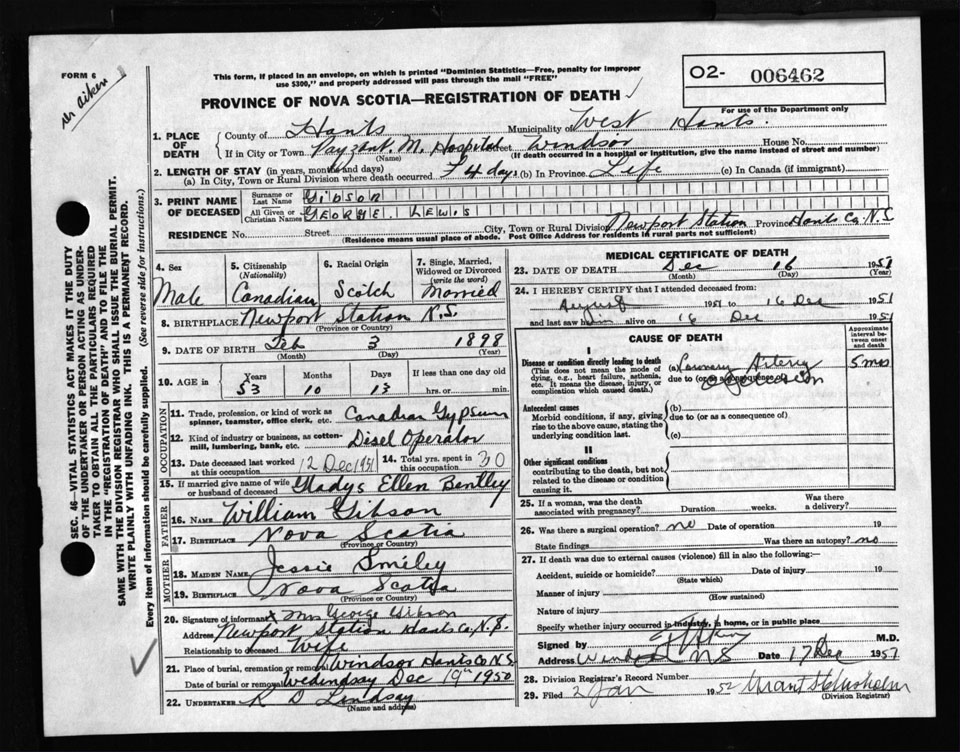 FORM 6
Dr Aiken
This form, if placed in an envelope, on which is printed "Dominion Statistics—Free, penalty for improper
use $300," and properly addressed will pass through the mail "FREE"
PROVINCE OF NOVA SCOTIA—REGISTRATION OF DEATH
O2- 006462
For use of the Department only
1. PLACE OF DEATH
County of Hants Municipality of West Hants.
If in City or Town Payzant. M. Hospital Street Windsor House No.
(Name) (If death occurred in a hospital or institution, give the name instead of street and number)
2. LENGTH OF STAY (in years, months and days)
(a) In City, Town or Rural Division where death occurred 4 days (b) In Province Life (c) In Canada (if immigrant)
3. PRINT NAME OF DECEASED
Surname or Last Name GIBSON
All Given or Christian Names GEORGE. LEWIS
RESIDENCE No. Street City, Town or Rural Division Newport Station Province Hants Co, N.S
(Residence means usual place of abode. Post Office Address for residents in rural parts not sufficient)
4. Sex
Male
5. Citizenship (Nationality)
Canadian
6. Racial Origin
Scotch
7. Single, Married, Widowed or Divorced (write the word)
Married
8. BIRTHPLACE Newport Station N.S.
(Province or Country)
9. DATE OF BIRTH Feb 3 1898
(Month) (Day) (Year)
10. AGE in
Years Months Days If less than one day old
53 10 13 hrs. or min.
OCCUPATION
11. Trade, profession, or kind of work as spinner, teamster, office clerk, etc. Canadian Gypsum
12. Kind of industry or business, as cotton-mill, lumbering, bank, etc. Disel Operator
13. Date deceased last worked at this occupation 12 Dec 1951
14. Total yrs. spent in this occupation 30
15. If married give name of wife or husband of deceased Gladys Ellen Bentley
FATHER
16. NAME William Gibson
17. BIRTHPLACE Nova Scotia
(Province or Country)
MOTHER
18. MAIDEN NAME Jessie Smiley
19. BIRTHPLACE Nova Scotia
(Province or Country)
20. Signature of informant x Mrs George Gibson
Address Newport Station Hants Co, N.S.
Relationship to deceased Wife
21. Place of burial, cremation or removal Windsor Hants Co N.S
Date of burial or removal Wedindsay Dec 19th 1950
22. UNDERTAKER K D Lindsay
(Name and address)
MEDICAL CERTIFICATE OF DEATH
23. DATE OF DEATH Dec 16 1951
(Month) (Day) (Year)
24. I HEREBY CERTIFY that I attended deceased from:
August 1951 to 16 Dec 1951
and last saw him alive on 16 Dec 1951
CAUSE OF DEATH
Approximate interval between onset and death
I
Disease or condition directly leading to death
(This does not mean the mode of dying, e.g., heart failure, asthenia, etc. It means the disease, injury, or complication which caused death.)
(a) Coronary Artery 5 mos
due to (or as a consequence of)
Antecedent causes
Morbid conditions, if any, giving rise to the above cause, stating the underlying condition last.
(b)
due to (or as a consequence of)
(c)
II
Other significant conditions
contributing to the death, but not related to the disease or condition causing it.
25. If a woman, was the death associated with pregnancy? Duration weeks. Was there a delivery?
26. Was there a surgical operation? no Date of operation 19
State findings Was there an autopsy? no
27. If death was due to external causes (violence) fill in also the following:—
Accident, suicide or homicide? Date of injury 19
(State which)
Manner of injury
(How sustained)
Nature of injury
Specify whether injury occurred in industry, in home, or in public place
Signed by M.D.
Address Windsor NS Date 17 Dec 1951
28. Division Registrar's Record Number
29. Filed 2 Jan 1952
(Division Registrar)
SEC. 46—VITAL STATISTICS ACT MAKES IT THE DUTY
OF THE UNDERTAKER OR PERSON ACTING AS UNDER-
TAKER TO OBTAIN ALL THE PARTICULARS REQUIRED
IN THE "REGISTRATION OF DEATH" AND TO FILE THE
SAME WITH THE DIVISION REGISTRAR WHO SHALL ISSUE THE BURIAL PERMIT.
WRITE PLAINLY WITH UNFADING INK. THIS IS A PERMANENT RECORD.
Every item of information should be carefully supplied. (See reverse side for instructions.)